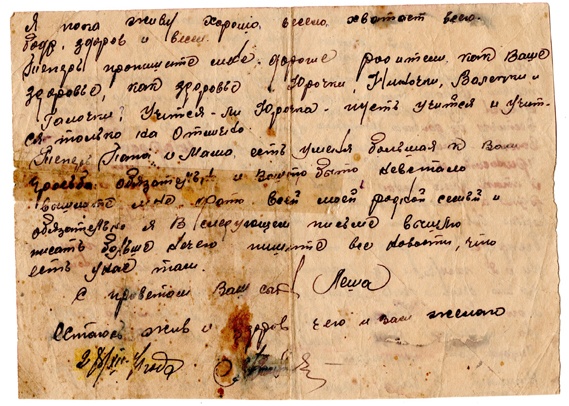 Я пока живу хорошо, весело, хватает всего.
бодр, здоров и весел.
Теперь пропишите мне, дорогие родители, как Ваше
здоровье, как здоровье Юрочки, Ниночки, Валечки и
Галочки? Учится-ли Юрочка. пусть учится и учит-
ся только на Отлично.
Теперь Папа, и Мама, есть у меня большая к Вам
просьба: обязательно и было
вышлите мне фото. всей моей родной семьи и
обязательно я В следующем письме вышлю
писать больше нечего пишите все новости, что
есть у вас там.
с приветом Ваш сын Леша
Остаюсь жив и здоров чего и вам желаю
года